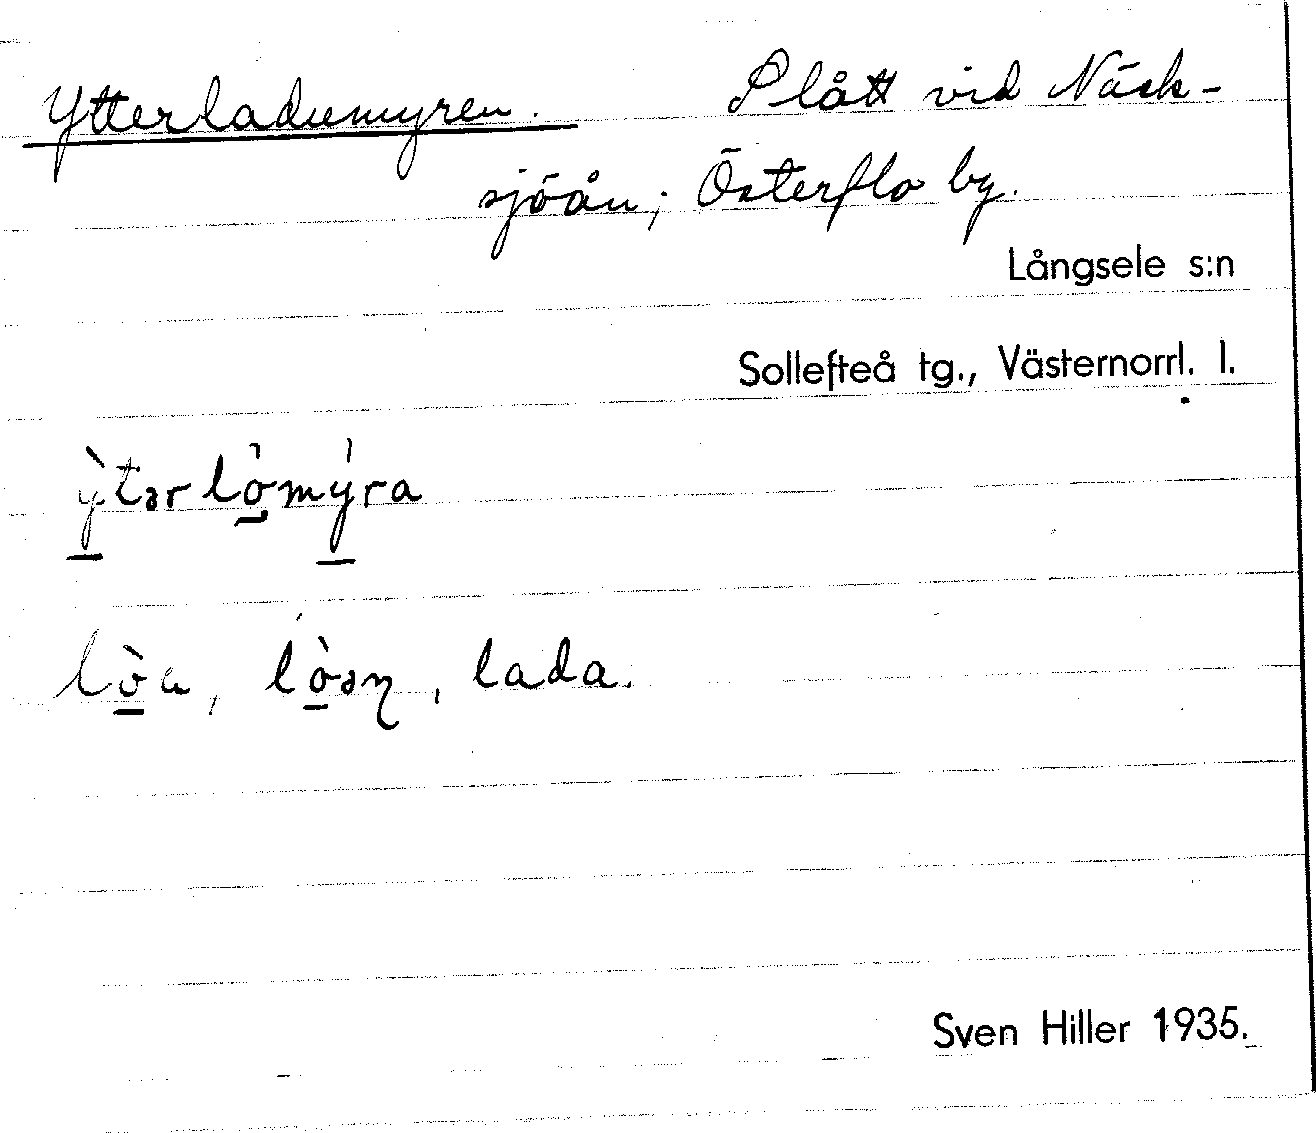 Ytterladumyren. Slått vid Näck-
sjöån; Österflo by.
Långsele s:n
Sollefteå tg., Västernorrl. l.
ỳ̠tərlo̠̍my̠̍ra
lò̠a, lò̠əɳ, lada.
Sven Hiller 1935.